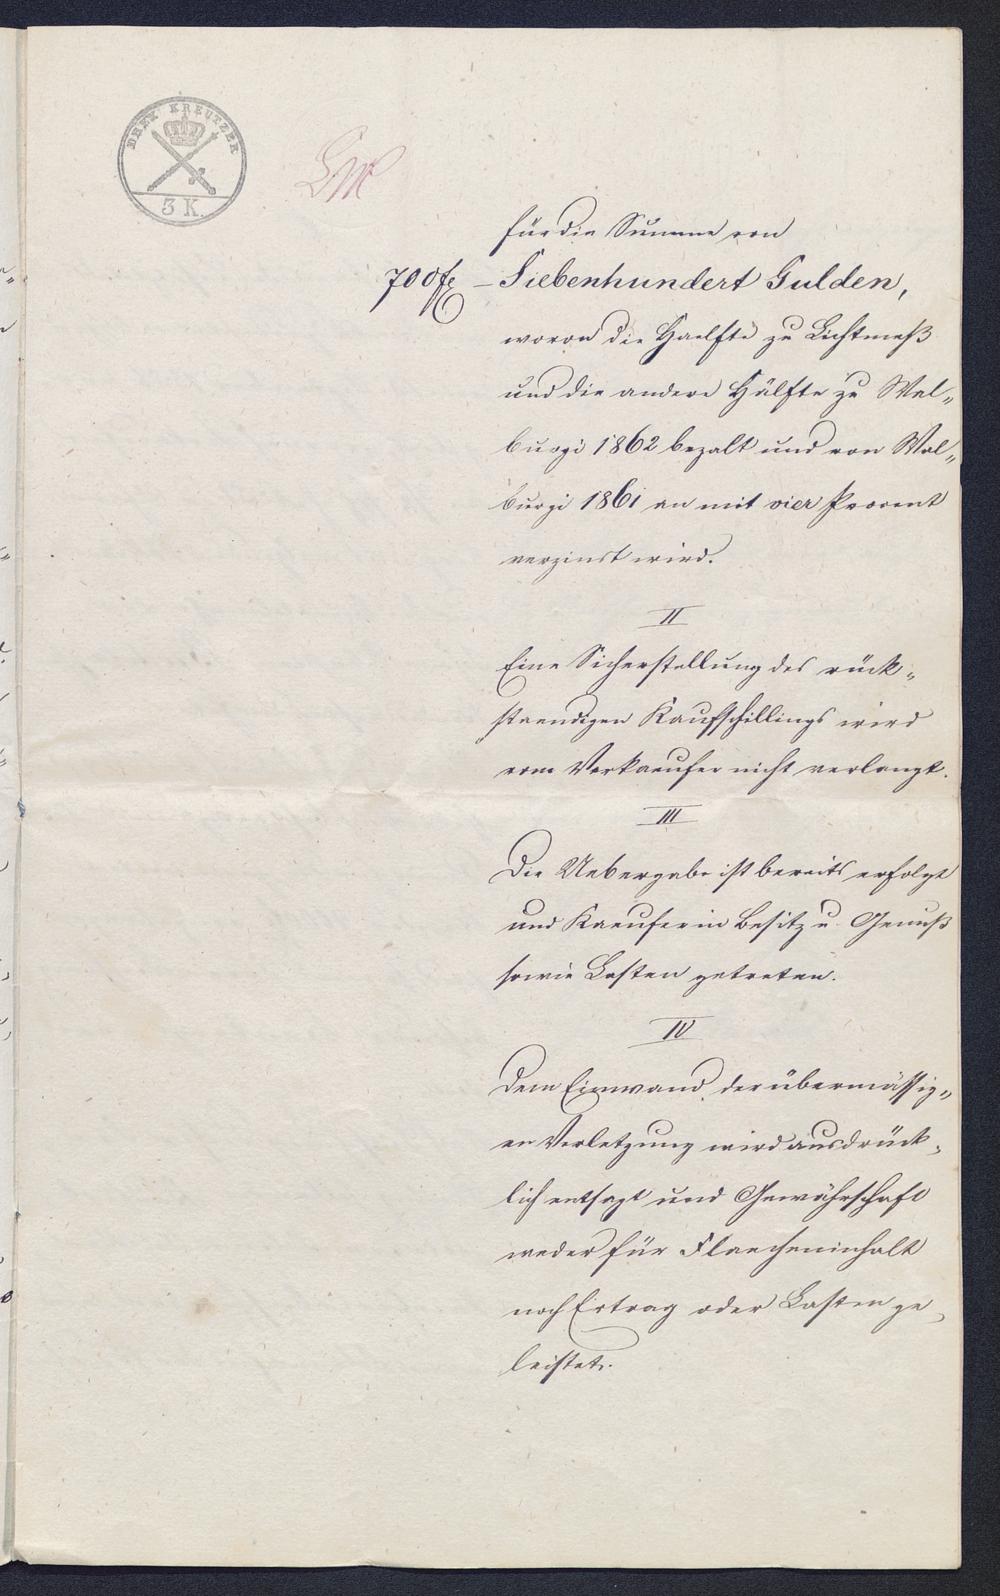 DREI KREUTZER
3 K.
für die Summe von
700 fl – Siebenhundert Gulden,
wovon die Haelfte zu Lichtmeß
und die andere Hälfte zu Wal„
burgi 1862 bezalt und von Wal„
burgi 1861 an mit vier Procent
verzinst wird.
II
Eine Sicherstellung des rück„
staendigen Kaufschillings wird
vom Verkaeufer nicht verlangt.
III
Die Uebergabe ist bereits erfolgt
und Kaeufer in Besitz u. Genuß
sowie Lasten getreten.
IV
Dem Einwand der übermässig„
en Verletzung wird ausdrück„
lich entsagt und Gewährschaft
weder für Flaecheninhalt
noch Ertrag oder Lasten ge„
leistet.